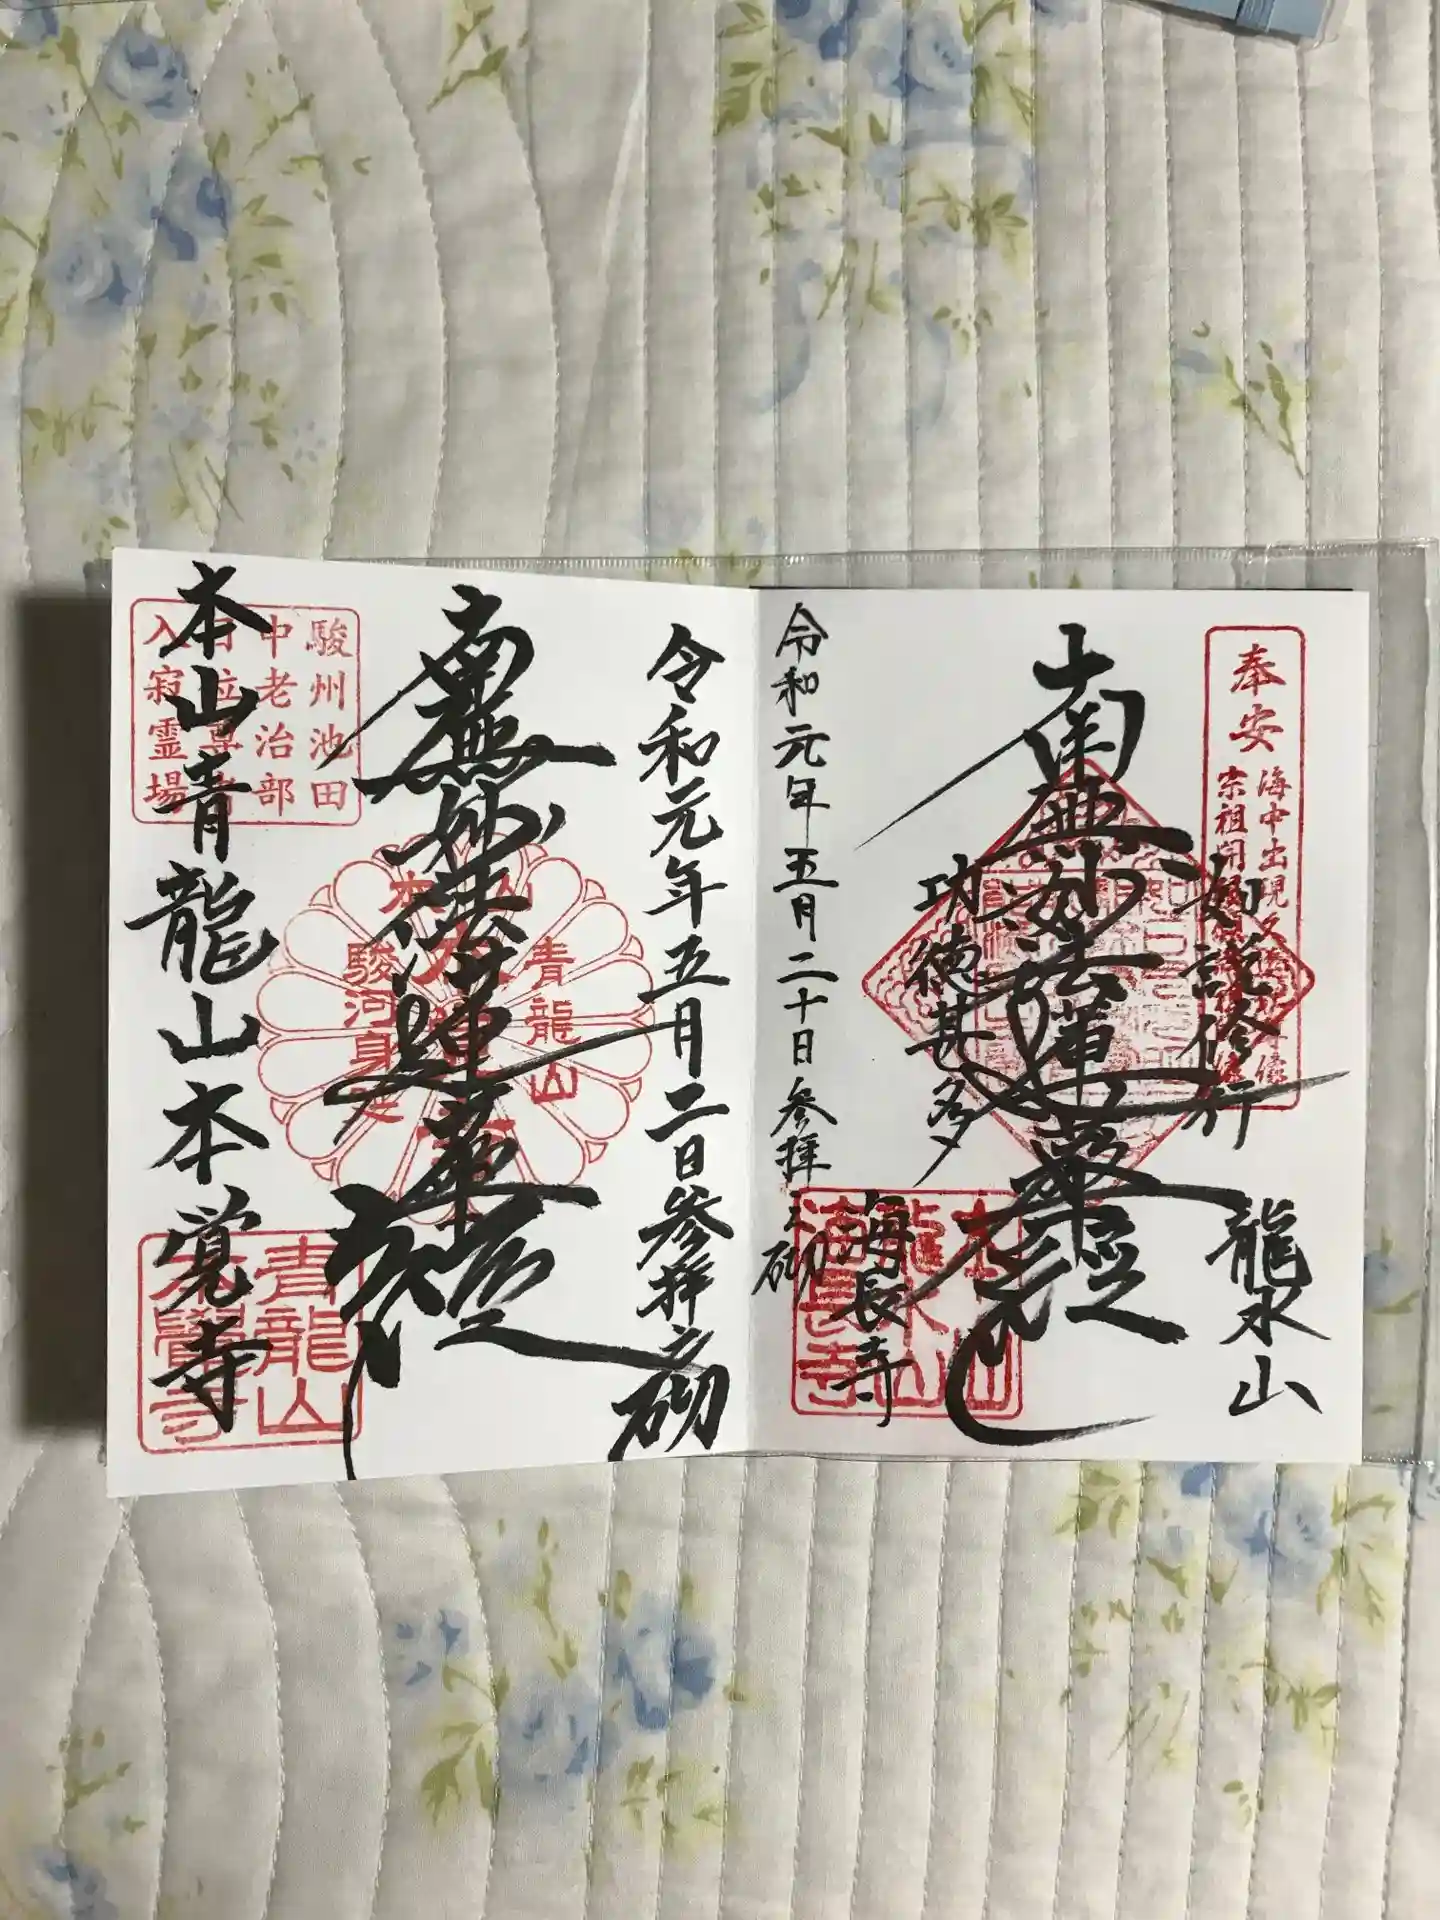 奉安
海中出現
宗祖開
如説修行
龍水山
南無妙法蓮華経
功徳甚多
海長寺
令和元年五月二十日参拝之砌
本山
龍水山
海長寺
令和元年五月二日参拝之砌
南無妙法蓮華経
本山青龍山本覚寺
駿州池田
中老治部
日位
入寂霊場
本山
青龍山
駿河身延
青龍山
本覺寺